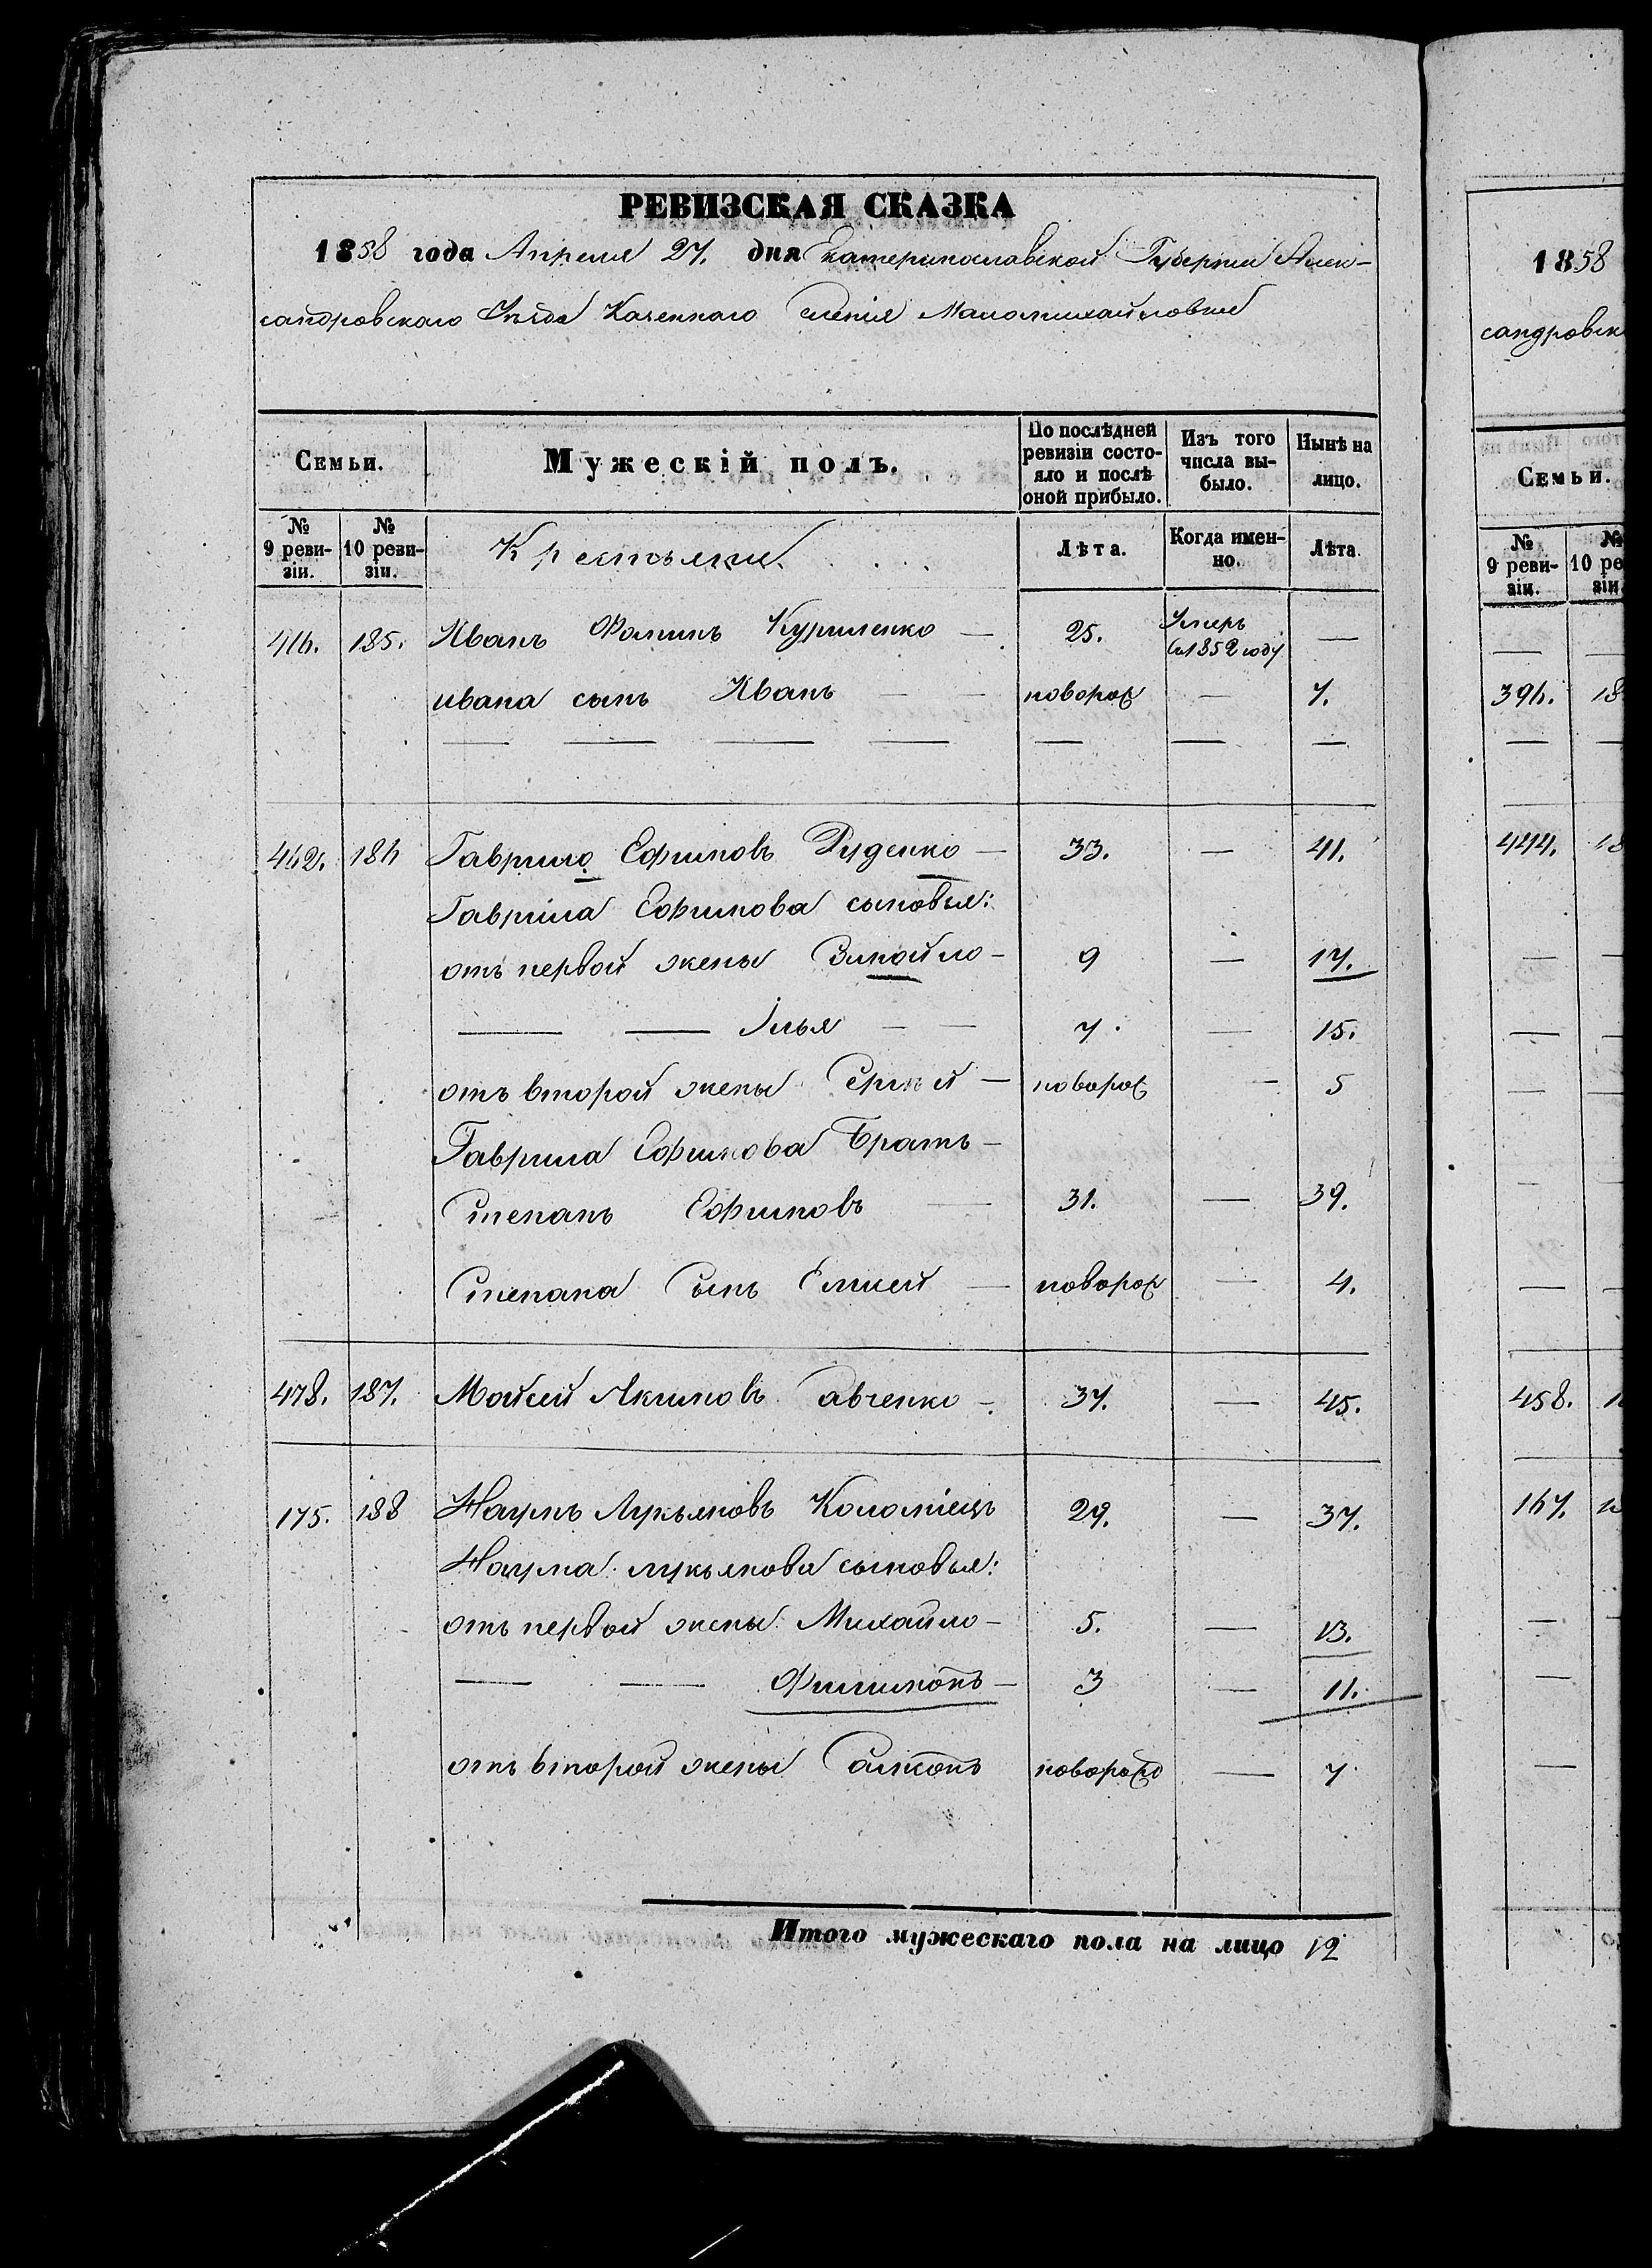 РЕВИЗСКАЯ СКАЗКА
1858 года Апреля 27. дня Екатеринославской Губернiи Алек-
сандровскаго Уѣзда Казеннаго Селенiя Маломихайловки
Семьи.
Мужескiй полъ.
По послѣдней ревизiи состо-яло и послѣ оной прибыло.
Изъ того числа вы-было.
Нынѣ на лицо.
№ 9 реви-зiи.
№ 10 реви-зiи.
Крестьяне.
Лѣта.
Когда имен-но.
Лѣта.
416. 185. Иванъ Фоминъ Куриленко — 25. Умеръ въ 1852 году —
ивана сынъ Иванъ — — новорож — 7.
462. 186 Гаврило Ефимовъ Руденко — 33. — 41.
Гаврiила Ефимова сыновья:
отъ первой жены Змойло — 9 — 17.
— — Iлья — — 7. — 15.
отъ второй жены Сергѣй — новорож — 5
Гаврила Ефимова Братъ —
Степанъ Ефимовъ — 31. — 39.
Степана Сынъ Елисей — новорож — 4.
478. 187. Мойсей Якимовъ Савченко — 37. — 45.
175. 188 Наумъ Лукьяновъ Коломiецъ 29. — 37.
Наума лукьянова сыновья:
отъ первой жены Михайло — 5. — 13.
— — Филимонъ — 3 — 11.
отъ второй жены Самсонъ новорожд — 7
Итого мужескаго пола на лицо 12
1858
сандровск
Семьи.
№ 9 реви-зiи.
№ 10 ре зiи
396. 18
444. 18
458. 1
167.